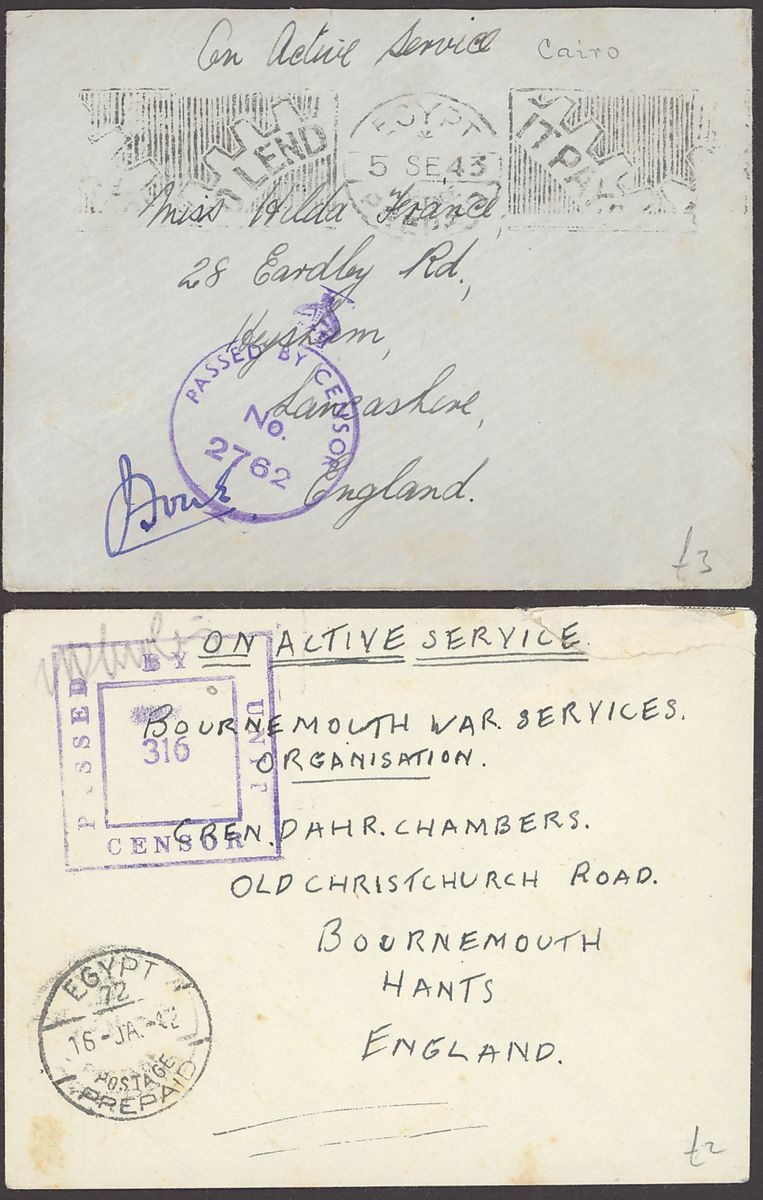 On Active Service Cairo
LEND
EGYPT
5 SE 43
PREPAID
IT PAYS
Miss Hilda France,
28 Eardley Rd.,
Heysham,
Lancashire,
England.
PASSED BY CENSOR
No.
2762
£3
ON ACTIVE SERVICE
PASSED BY UNIT CENSOR
316
BOURNEMOUTH WAR SERVICES.
ORGANISATION.
GREN. DAHR. CHAMBERS.
OLD CHRISTCHURCH ROAD.
BOURNEMOUTH
HANTS
ENGLAND.
EGYPT
72
16-JA.-42
POSTAGE
PREPAID
£2